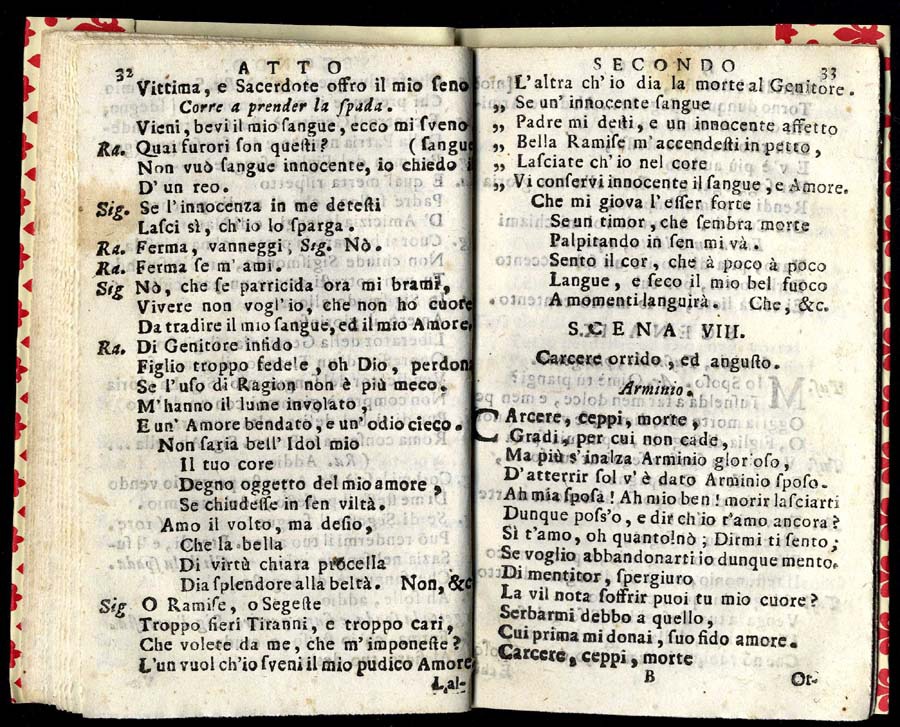 32 ATTO
Vittima, e Sacerdote offro il mio ſeno
Corre a prender la ſpada.
Vieni, bevi il mio ſangue, ecco mi ſveno
Ra. Quai furori ſon queſti? (ſangue
Non vuò ſangue innocente, io chiedo i
D' un reo.
Sig. Se l'innocenza in me deteſti
Laſci sì, ch'io lo ſparga.
Ra. Ferma, vanneggi; Sig. Nò.
Ra. Ferma ſe m' ami.
Sig Nò, che ſe parricida ora mi brami,
Vivere non vogl'io, che non hò cuore
Da tradire il mio ſangue, ed il mio Amore.
Ra. Di Genitore infido
Figlio troppo fedele, oh Dio, perdona
Se l'uſo di Ragion non è più meco.
M'hanno il lume involato,
E un' Amore bendato, e un' odio cieco.
Non ſaria bell' Idol mio
Il tuo core
Degno oggetto del mio amore,
Se chiudeſſe in ſen viltà.
Amo il volto, ma deſio,
Che la bella
Di virtù chiara procella
Dia ſplendore alla beltà. Non, &c
Sig O Ramiſe, o Segeſte
Troppo fieri Tiranni, e troppo cari,
Che volete da me, che m'imponeſte?
L'un vuol ch'io ſveni il mio pudico Amore
L'al-
SECONDO 33
L'altra ch' io dia la morte al Genitore.
„ Se un' innocente ſangue
„ Padre mi deſti, e un innocente affetto
„ Bella Ramiſe m'accendeſti in petto,
„ Laſciate ch'io nel core
„ Vi conſervi innocente il ſangue, e Amore.
Che mi giova l'eſſer forte
Se un timor, che ſembra morte
Palpitando in ſen mi và.
Sento il cor, che à poco à poco
Langue, e ſeco il mio bel fuoco
A momenti languirà. Che, &c.
SCENA VIII.
Carcere orrido, ed anguſto.
Arminio.
CArcere, ceppi, morte,
Gradi, per cui non cade,
Ma più s'inalza Arminio glorioſo,
D'atterrir ſol v' è dato Arminio ſpoſo.
Ah mia ſpoſa! Ah mio ben! morir laſciarti
Dunque poſs'o, e dir ch'io t'amo ancora?
Sì t'amo, oh quanto! nò; Dirmi ti ſento;
Se voglio abbandonarti io dunque mento.
Di mentitor, ſpergiuro
La vil nota ſoffrir puoi tu mio cuore?
Serbarmi debbo a quello,
Cui prima mi donai, ſuo fido amore.
Carcere, ceppi, morte
B Or-